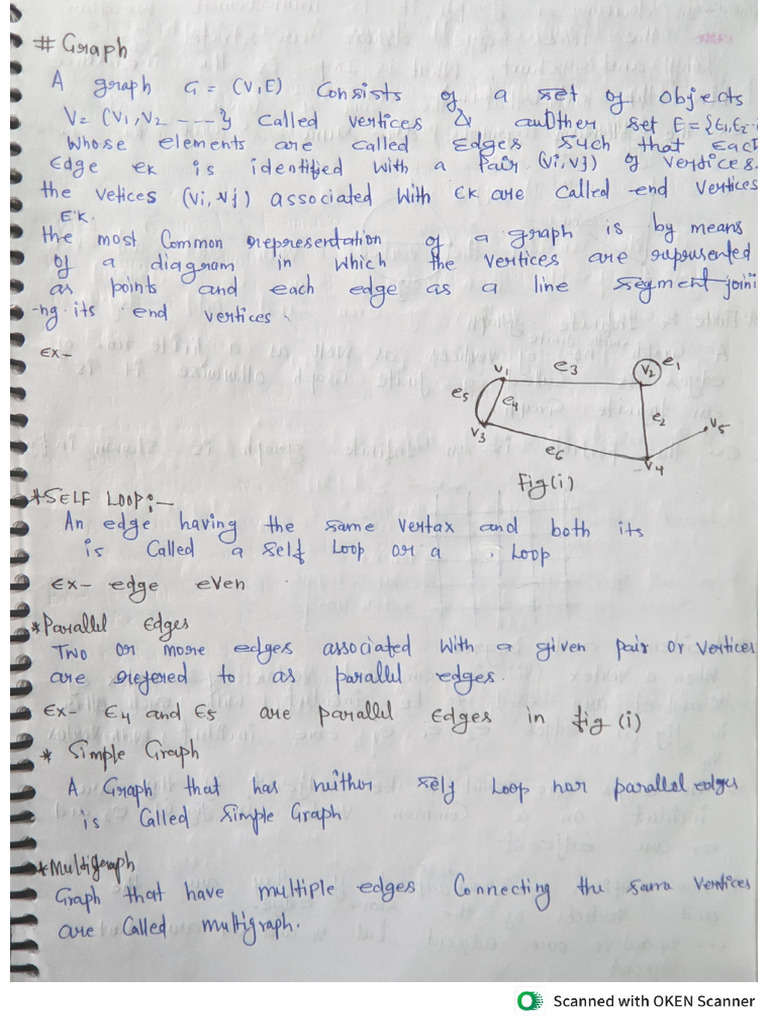 # Graph
A graph G = (V,E) Consists of a set of Objects
V= {V1,V2 ----} Called vertices & another set E={E1,E2-
Whose elements are called Edges such that Eac
Edge ek is identified with a Pair (Vi,Vj) of vertices.
the vetices (Vi,Vj) associated With Ek are Called end Vertices
EK.
the most Common representation of a graph is by means
of a diagram in which the vertices are represented
as points and each edge as a line segment joini
-ng its end vertices.
Ex-
V1 e3 V2 e1
e5 e4 e2 V5
V3 e6 V4
Fig(i)
*SELF LOOP:-
An edge having the same Vertax and both its
is Called a self Loop or a Loop
Ex- edge even
*Parallel Edges
Two or more edges associated With a given pair or vertices
are refered to as parallel edges.
Ex- E4 and E5 are parallel Edges in fig (i)
* Simple Graph
A Graph that has neither self Loop nor parallel edges
is Called Simple Graph
*Multigraph
Graph that have multiple edges Connecting the same Vertices
are Called multigraph.
Scanned with OKEN Scanner